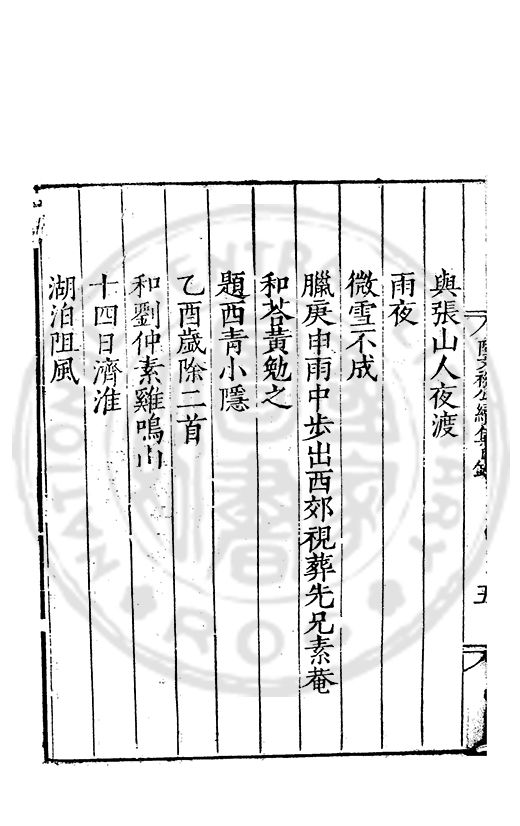 與張山人夜渡
雨夜
微雪不成
臘庚申雨中步出西郊視葬先兄素菴
和荅黃勉之
題西青小隱
乙酉歲除二首
和劉仲素雞鳴山
十四日濟淮
湖泊阻風
五